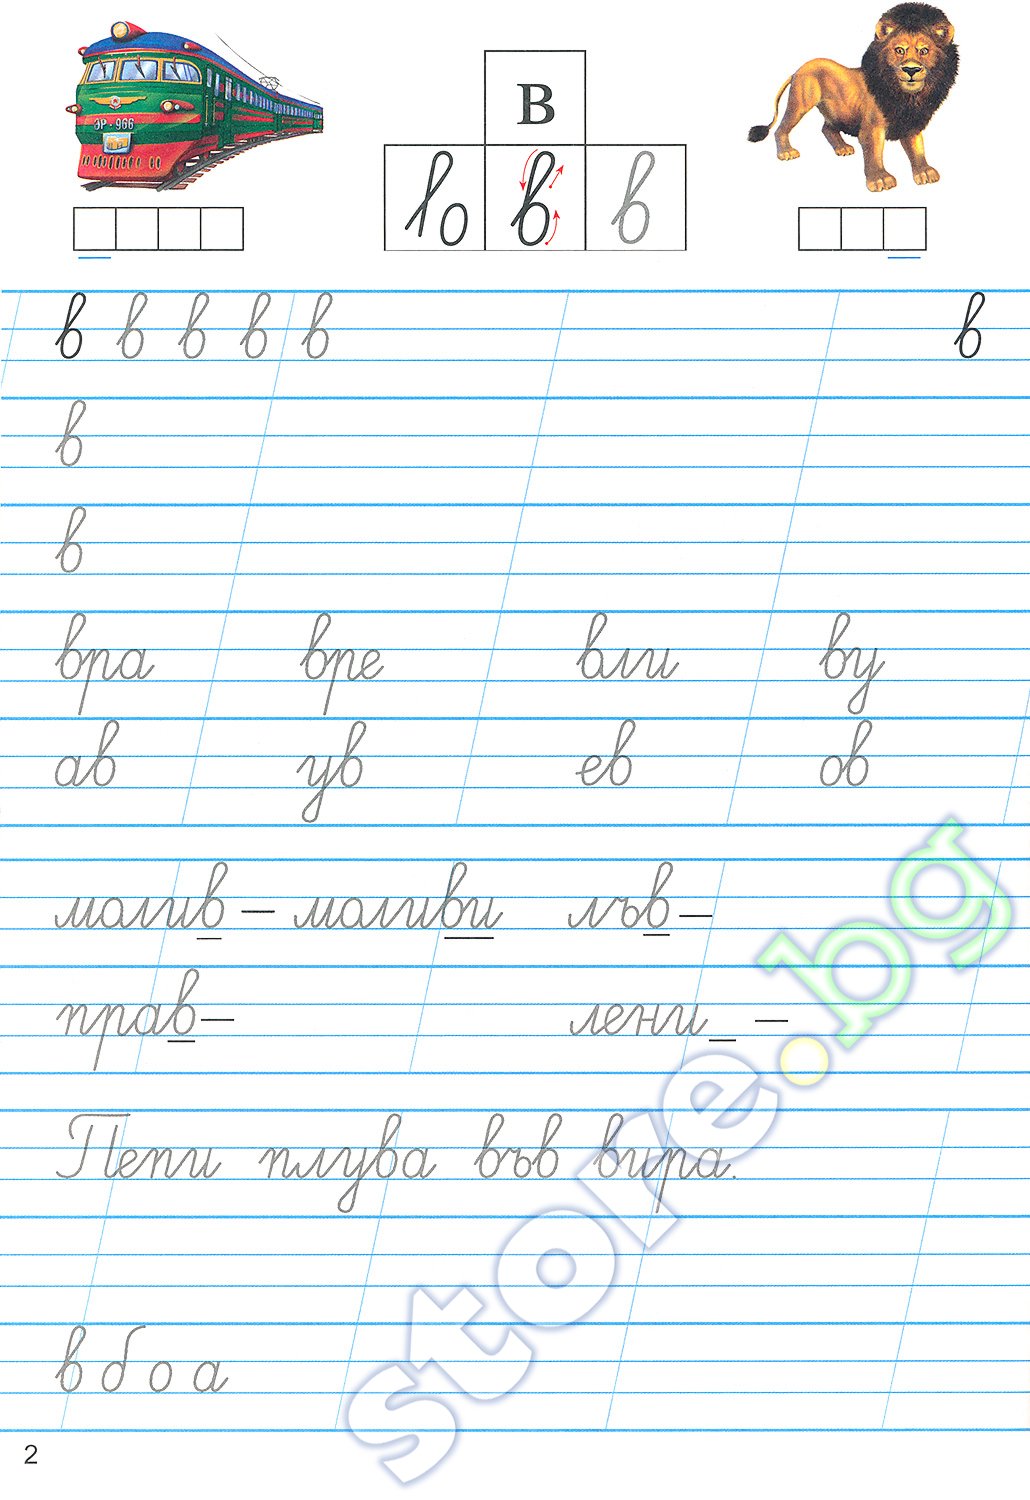 ЭР-966
В
в в
в в в в в в
в
в
вра вре вли ву
ав ув ев ов
молив – моливи лъв –
прав – лени_ –
Пепи плува във вира.
в б о а
2
store.bg